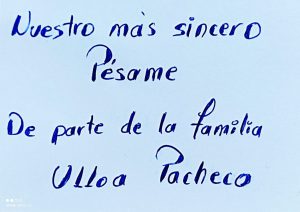 Nuestro más sincero
Pésame
De parte de la familia
Ulloa Pacheco